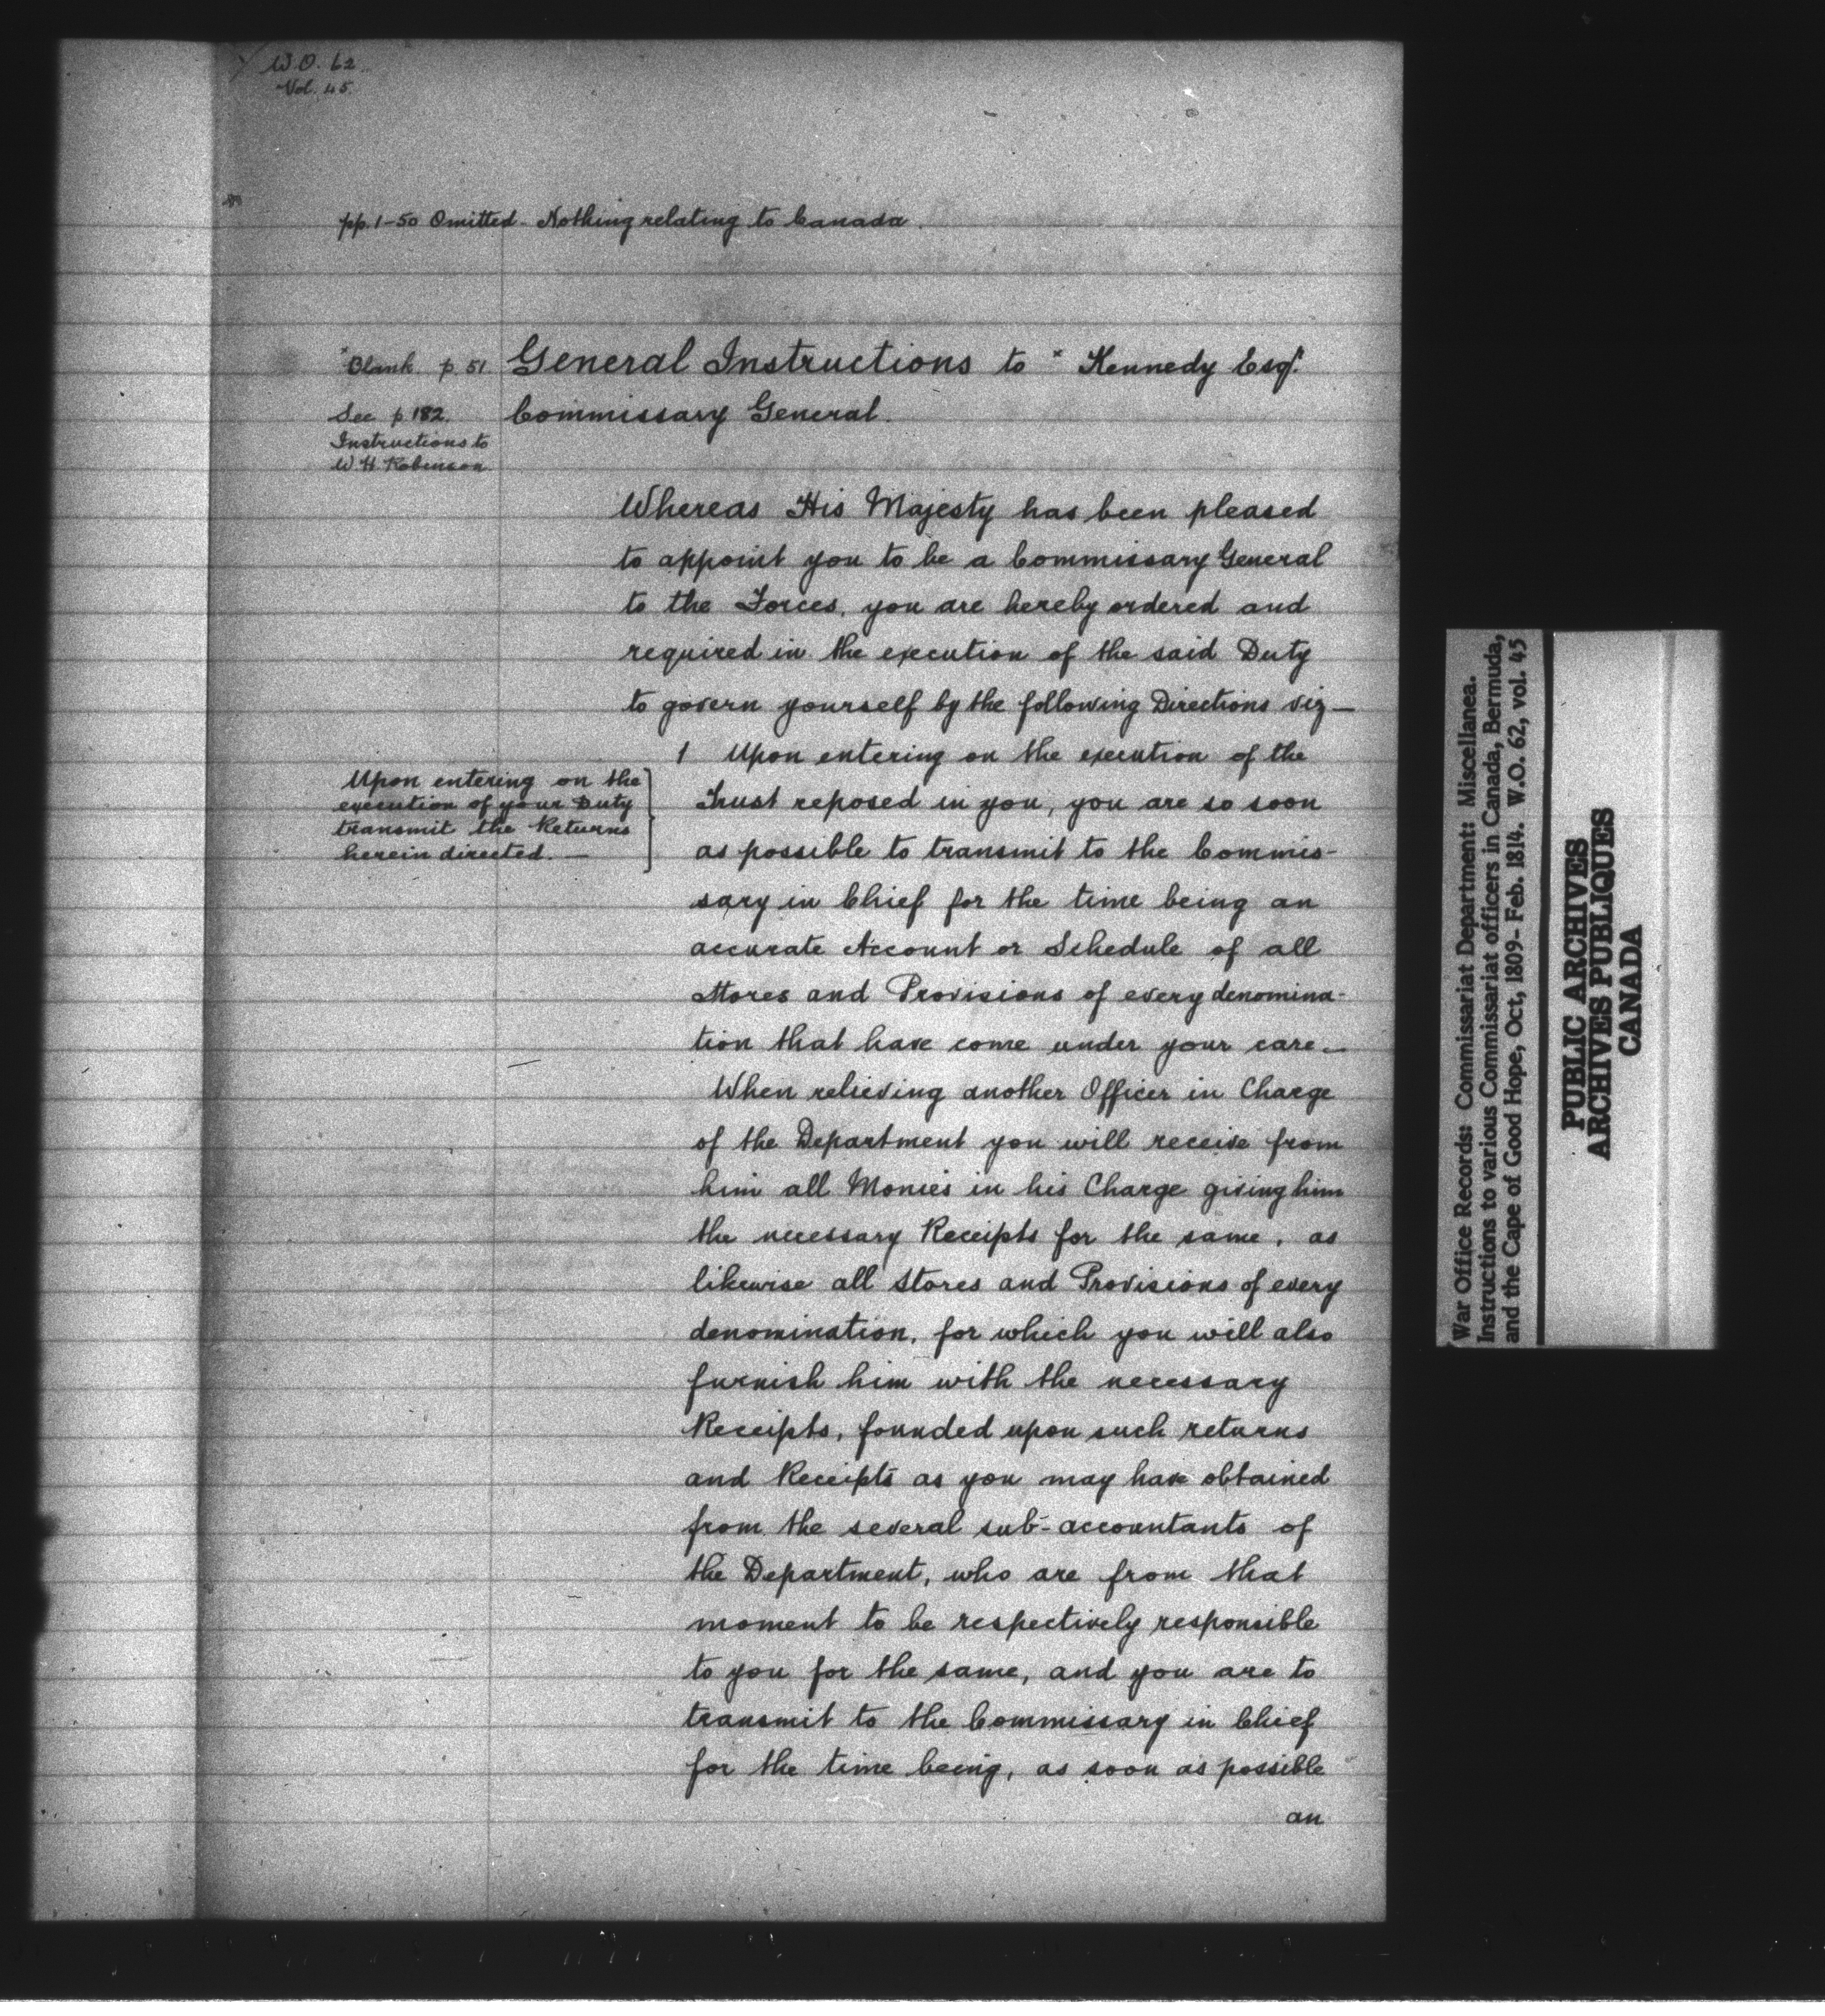 W.O. 62
Vol. 45.
pp. 1-50 Omitted - Nothing relating to Canada.
*Blank p 51
General Instructions to * Kennedy Esqr.
Commissary General.
See p. 182.
Instructions to
W. H. Robinson.
Whereas His Majesty has been pleased
to appoint you to be a Commissary General
to the Forces, you are hereby ordered and
required in the execution of the said Duty
to govern yourself by the following Directions viz—
Upon entering on the
execution of your Duty
transmit the Returns
herein directed. —
1 Upon entering on the execution of the
Trust reposed in you, you are so soon
as possible to transmit to the Commis-
sary in Chief for the time being an
accurate Account or Schedule of all
Stores and Provisions of every denomina-
tion that have come under your care.—
When relieving another Officer in Charge
of the Department you will receive from
him all Monies in his Charge giving him
the necessary Receipts for the same, as
likewise all Stores and Provisions of every
denomination, for which you will also
furnish him with the necessary
Receipts, founded upon such returns
and Receipts as you may have obtained
from the several sub-accountants of
the Department, who are from that
moment to be respectively responsible
to you for the same, and you are to
transmit to the Commissary in Chief
for the time being, as soon as possible
an
War Office Records: Commissariat Department: Miscellanea.
Instructions to various Commissariat officers in Canada, Bermuda,
and the Cape of Good Hope, Oct, 1809- Feb. 1814. W.O. 62, vol. 45
PUBLIC ARCHIVES
ARCHIVES PUBLIQUES
CANADA